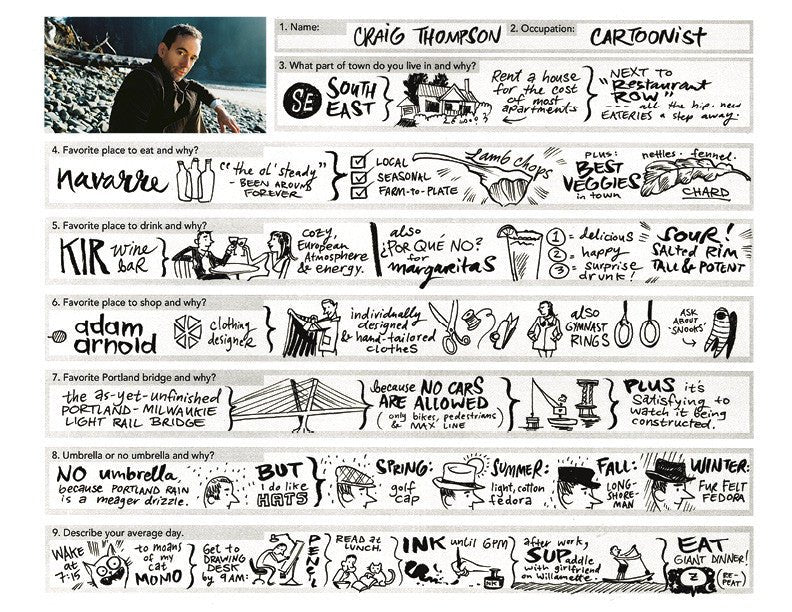 1. Name: CRAIG THOMPSON 2. Occupation: CARTOONIST
3. What part of town do you live in and why?
SE SOUTH EAST
Rent a house
for the cost
of most
apartments
NEXT TO
"Restaurant
ROW"
all the hip new
EATERIES a step away.
4. Favorite place to eat and why?
navarre
"the ol' steady"
- BEEN AROUND
FOREVER
LOCAL
SEASONAL
FARM-to-PLATE
Lamb chops
PLUS:
BEST
VEGGIES
in town
nettles. fennel.
CHARD
5. Favorite place to drink and why?
KIR wine
BAR
cozy,
European
Atmosphere
& energy.
also
¿POR QUÉ NO?
for
margaritas
1 = delicious
2 = happy
3 = surprise
drunk!
SOUR!
SALTED RIM
TALL & POTENT
6. Favorite place to shop and why?
adam
arnold
clothing
designer
individually
designed
& hand-tailored
clothes
also
GYMNAST
RINGS
ASK
ABOUT
'SNOOKS'
7. Favorite Portland bridge and why?
the as-yet-unfinished
PORTLAND-MILWAUKIE
LIGHT RAIL BRIDGE
because NO CARS
ARE ALLOWED
(only bikes, pedestrians
& MAX LINE)
PLUS it's
satisfying to
watch it being
constructed.
8. Umbrella or no umbrella and why?
NO umbrella,
because PORTLAND RAIN
is a meager drizzle.
BUT
I do like
HATS
SPRING:
golf
cap
SUMMER:
light, cotton
fedora
FALL:
LONG-
SHORE-
MAN
WINTER:
FUR FELT
FEDORA
9. Describe your average day.
WAKE
at
7:15
to moans
of my
cat
MOMO
Get to
DRAWING
DESK
by 9AM:
PENCIL
READ at
LUNCH.
INK until 6PM
INK
after work,
SUP paddle
with girlfriend
on Willamette.
EAT
GIANT DINNER!
Z
(RE-
PEAT)